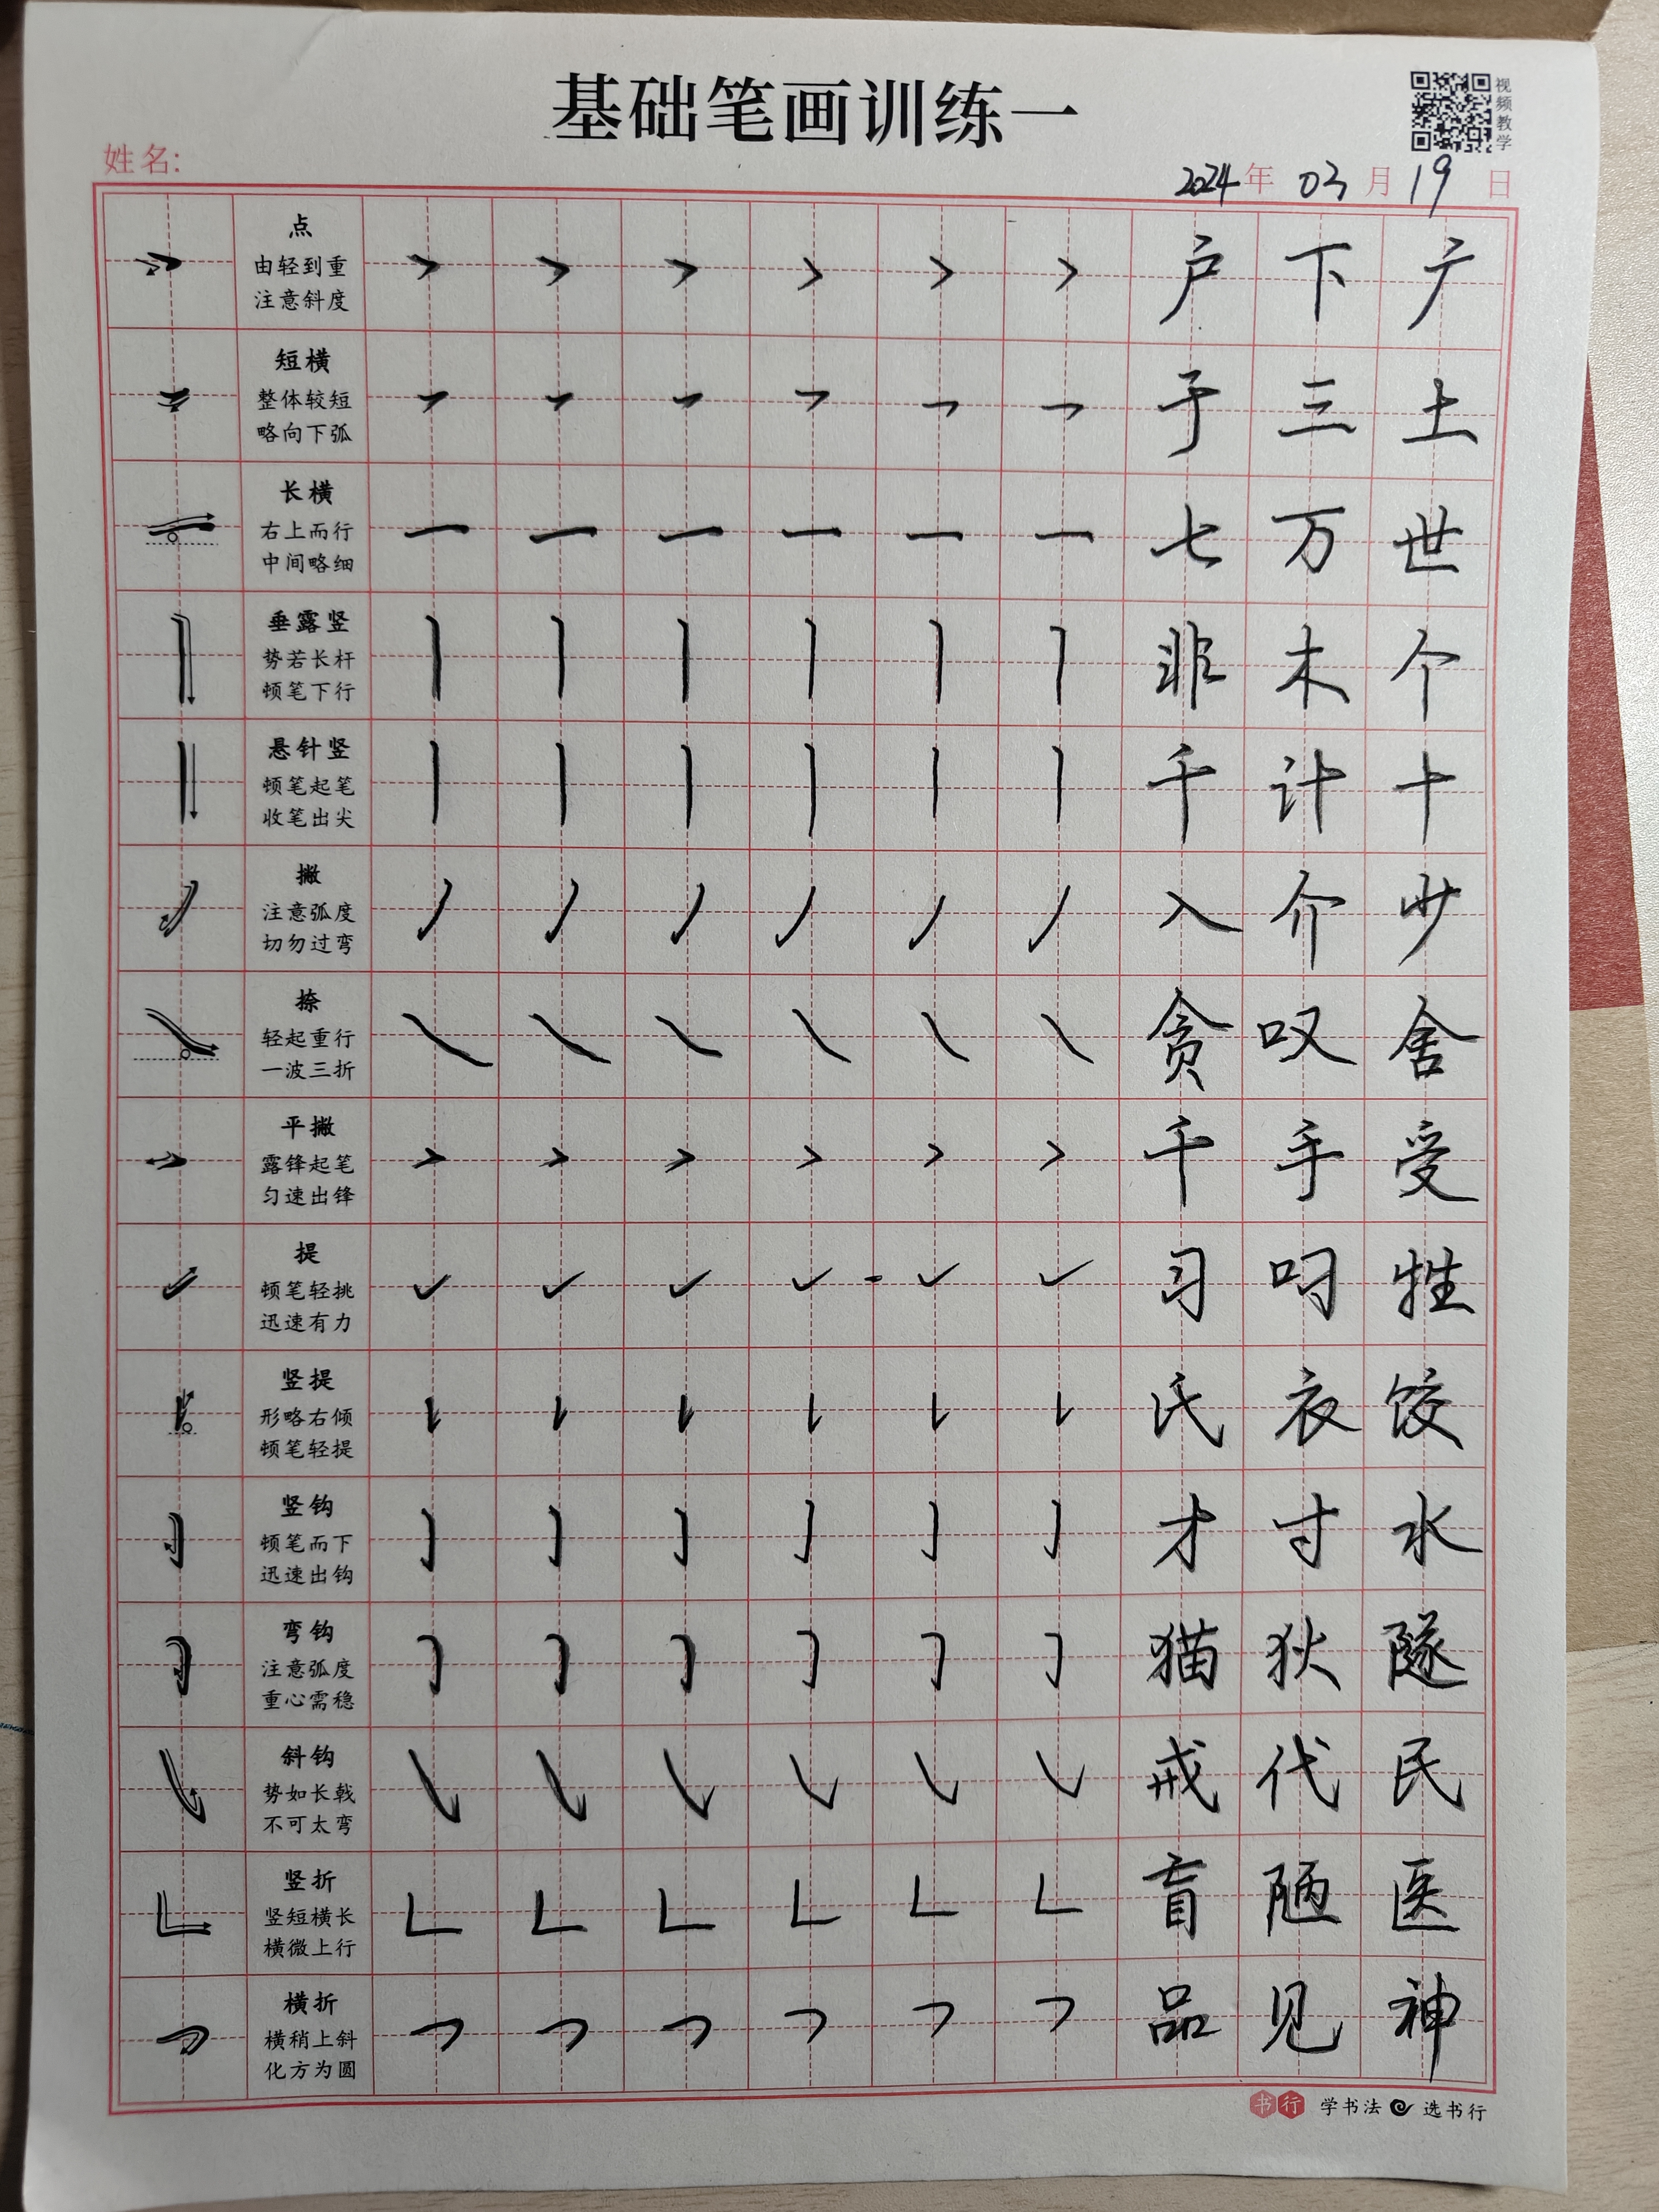 基础笔画训练一
视频教学
姓名:
2024年 03月 19日
点
由轻到重
注意斜度
户 下 广
短横
整体较短
略向下弧
于 三 土
长横
右上而行
中间略细
七 万 世
垂露竖
势若长杆
顿笔下行
非 木 个
悬针竖
顿笔起笔
收笔出尖
千 计 十
撇
注意弧度
切勿过弯
入 介 少
捺
轻起重行
一波三折
贪 叹 舍
平撇
露锋起笔
匀速出锋
千 手 受
提
顿笔轻挑
迅速有力
习 叼 牲
竖提
形略右倾
顿笔轻提
氏 衣 饺
竖钩
顿笔而下
迅速出钩
才 寸 水
弯钩
注意弧度
重心需稳
猫 狄 隧
斜钩
势如长戟
不可太弯
戒 代 民
竖折
竖短横长
横微上行
盲 陋 医
横折
横稍上斜
化方为圆
品 见 神
书行 学书法 选书行